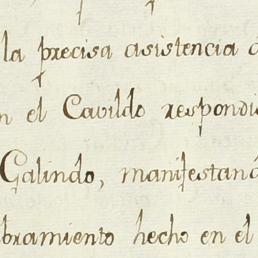 la precisa asistencia d
n el Cavildo respondi
Galindo, manifestan
bramiento hecho en el